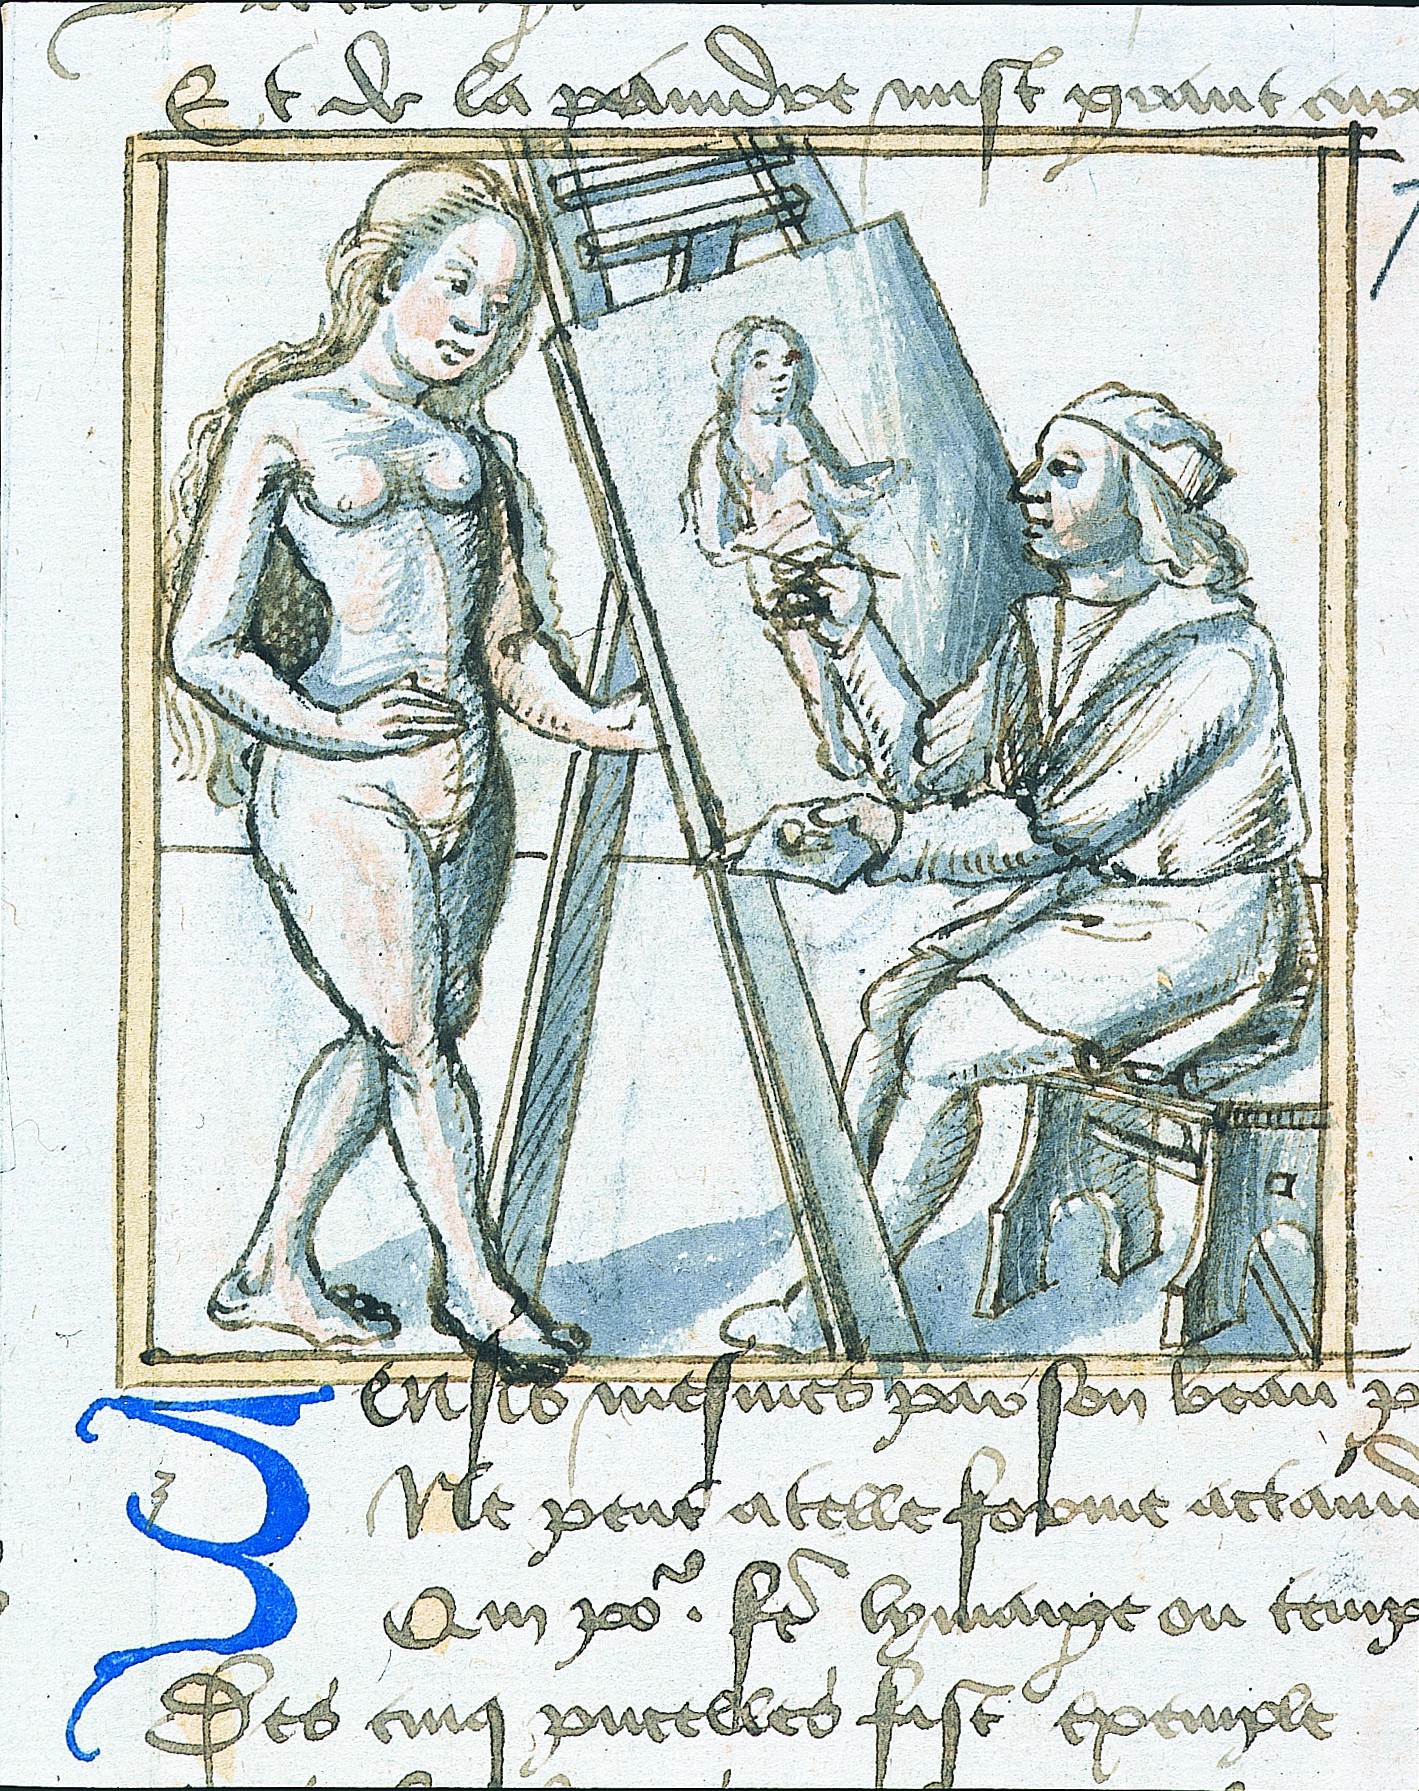 Et de la paindre mist grant
Zensis mesmes par son beau
Ne peut a telle forme actaind
Qui po². f͂e lymaige ou temp
Des cinq pucelles fist exemple